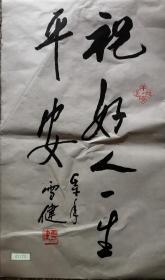 祝好人一生
平安
雪健